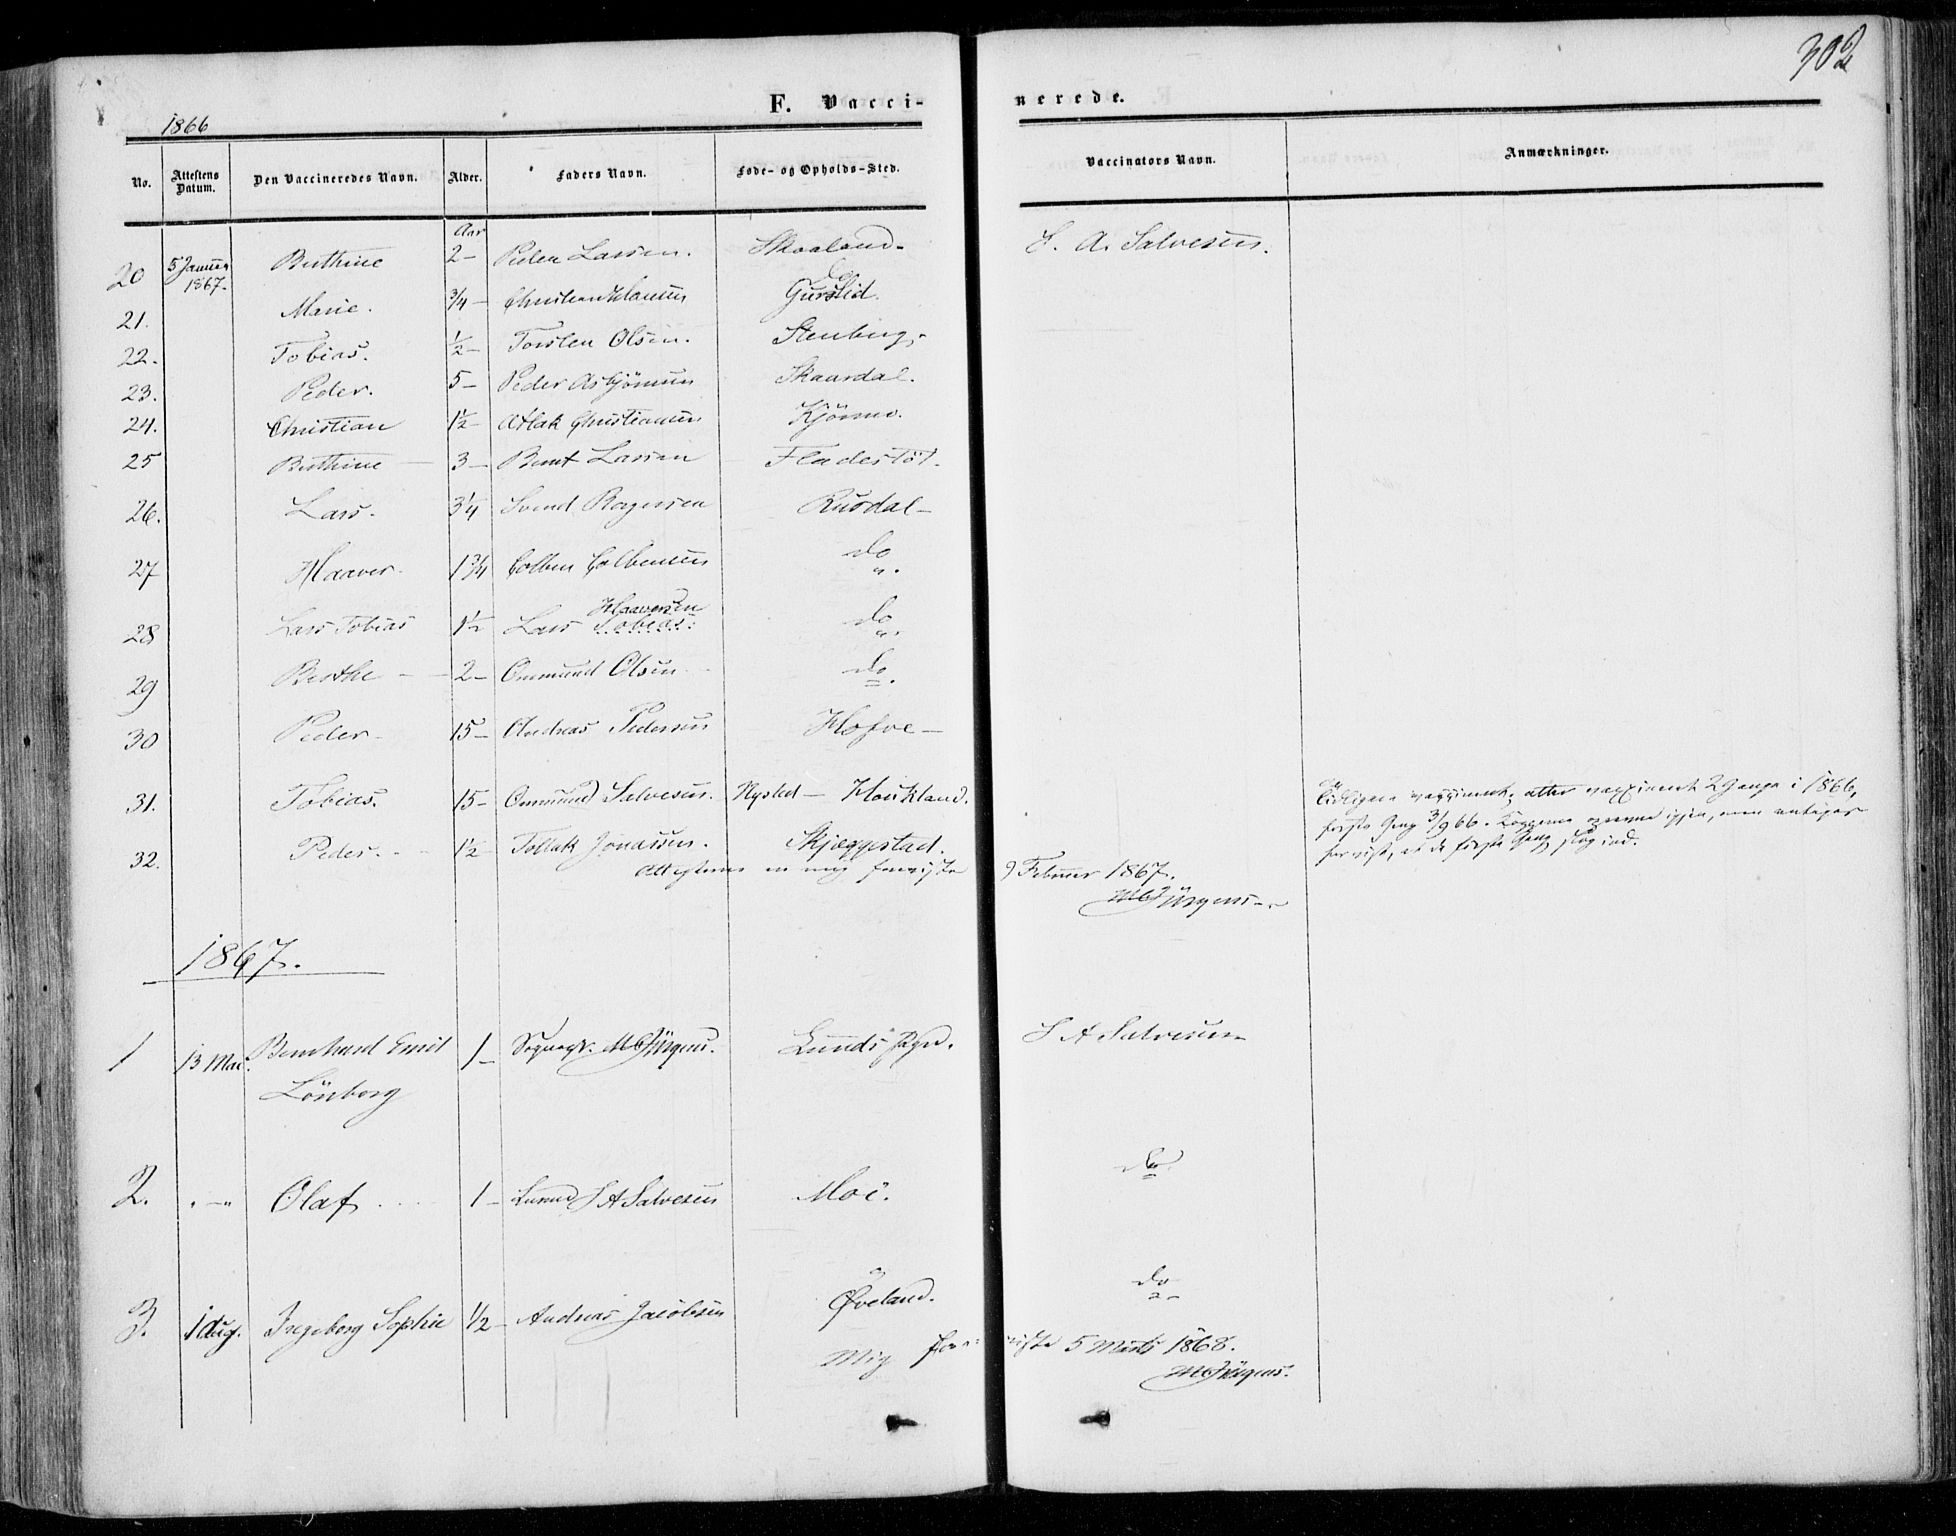 302
F. Vacci- nerede.
1866
No. Attestens Datum. Den Vaccineredes Navn. Alder. Faders Navn. Føde- og Opholds-Sted. Vaccinators Navn. Anmærkninger.
Aar
20 5 Januar 1867. Berthine 2 – Peder Larsen. Skaaland. S. A. Salvesen.
21. Marie. 3/4 – Christian Clausen Gurslid.
22. Tobias. 1/2 – Torsten Olsen. Stenberg.
23. Peder. 5 – Peder Asbjörnsen Skaardal.
24. Christian 1 1/2 – Atlak Christiansen Kjörmo.
25 Berthine – 3 – Bernt Larsen Fladestöl.
26. Lars. 3 1/4 Svend Rasmussen Rusdal –
27 Haaver. 1 3/4 Colben Colbensen do
28 Lars Tobias 1 1/2 Lars Haaversen Tobias. do
29 Berthe – – 2 – Ommund Olsen do
30 Peder – 15 – Andreas Pedersen Hofve –
31. Tobias. 15 – Ommund Salvesen. Nysted – Haukland.
Tidligere vaccineret, atter vaccineret 2 Gange i 1866,
første Gang 3/9 66. Kopperne igjen, men
første Gang slog ind.
32. Peder. – 1 1/2 – Tollak Jonassen. Skjeggestad.
Attesterne ere mig foreviste 9 Februar 1867.
M Jürgens
1867.
1 13 Mai. Bernhard Emil 1 – Sognepr. M Jürgens. Lunds Pgd. S A Salvesen
Lönborg
2. " – " Olaf 1 – Lensmd S A Salvesen Moi. do
3. 1 Aug. Ingeborg Sophie 1/2 – Andreas Jacobsen Øveland. do
Mig foreviste 5 Marts 1868.
M Jürgens.